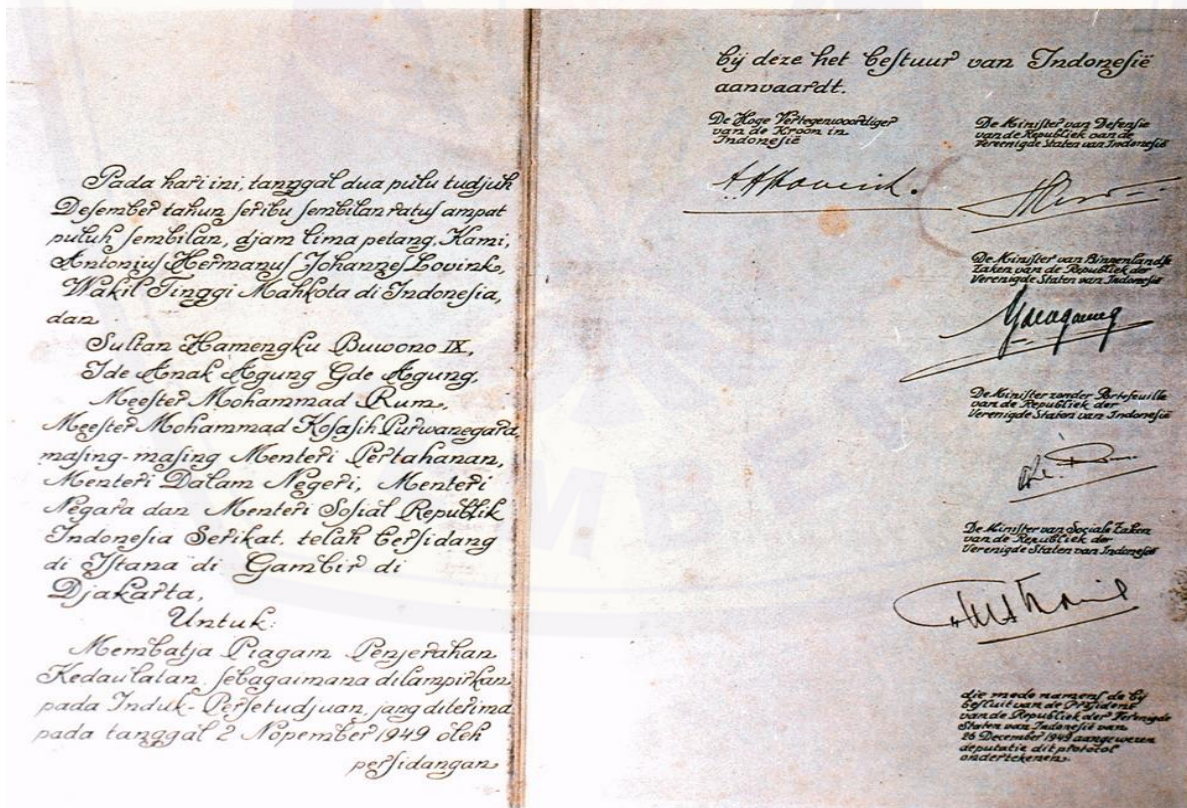 Pada hari ini, tanggal dua pulu tudjuh
Desember tahun seribu sembilan ratus ampat
puluh sembilan, djam lima petang, Kami,
Antonius Hermanus Johannes Lovink,
Wakil Tinggi Mahkota di Indonesia,
dan
Sultan Hamengku Buwono IX,
Ide Anak Agung Gde Agung,
Meester Mohammad Rum,
Meester Mohammad Kosasih Purwanegara,
masing-masing Menteri Pertahanan,
Menteri Dalam Negeri, Menteri
Negara dan Menteri Sosial Republik
Indonesia Serikat, telah bersidang
di Istana di Gambir di
Djakarta,
Untuk:
Membatja Piagam Penjerahan
Kedaulatan, sebagaimana dilampirkan
pada Induk-Persetudjuan, jang diterima
pada tanggal 2 Nopember 1949 oleh
persidangan
bij deze het bestuur van Indonesië
aanvaardt.
De Hoge Vertegenwoordiger
van de Kroon in
Indonesië
AHJLovink.
De Minister van Defensie
van de Republiek van de
Verenigde Staten van Indonesië
De Minister van Binnenlandse
Zaken van de Republiek der
Verenigde Staten van Indonesië
De Minister zonder Portefeuille
van de Republiek der
Verenigde Staten van Indonesië
De Minister van Sociale Zaken
van de Republiek der
Verenigde Staten van Indonesië
die mede namens de bij
besluit van de President
van de Republiek der Verenigde
Staten van Indonesië van
26 December 1949 aangewezen
deputatie dit protocol
ondertekenen.